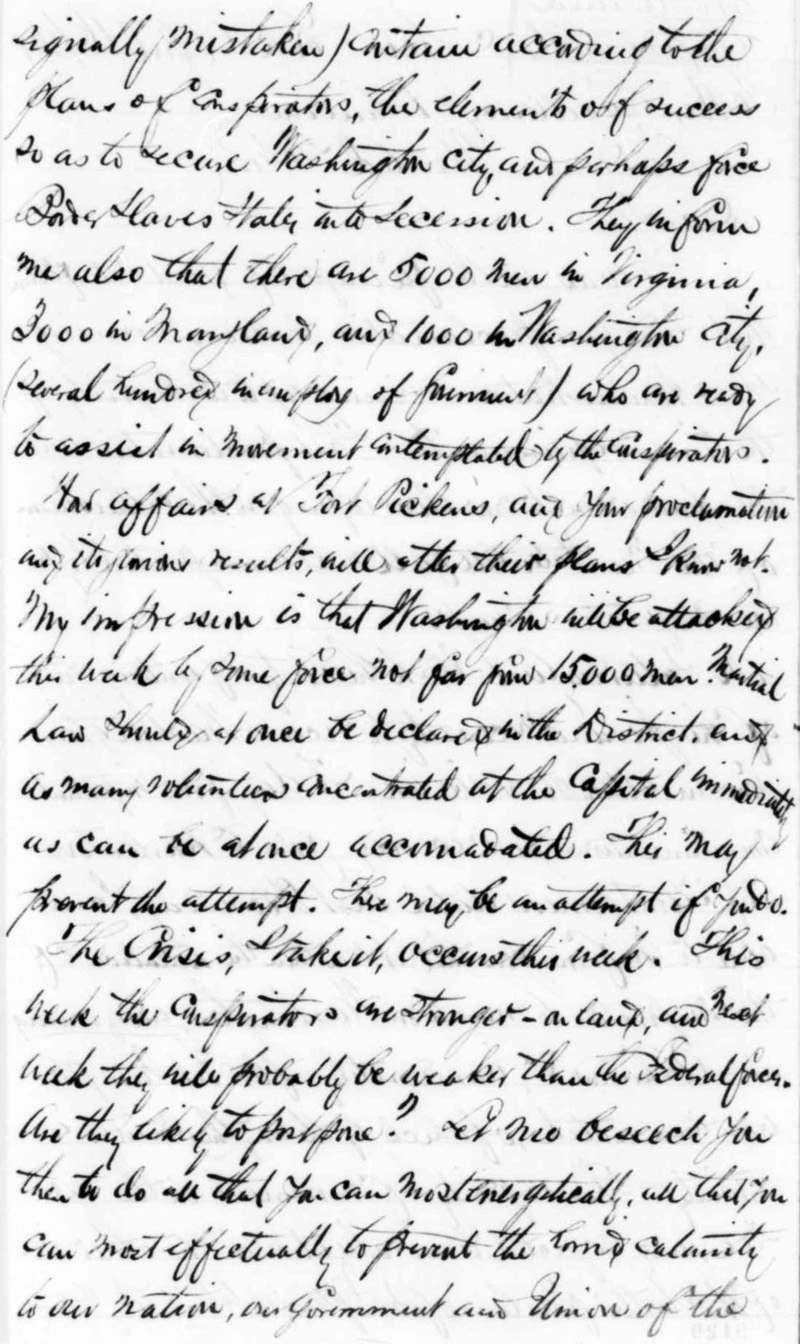 signally mistaken) contain according to the
plans of conspirators, the elements of success
so as to secure Washington city, and perhaps force
Border Slaves States into Secession. They inform
me also that there are 5000 men in Virginia,
3000 in Maryland, and 1000 in Washington City,
(several hundred in employ of government) who are ready
to assist in movement contemplated by the conspirators.
How affairs at Fort Pickens, and your proclamation
and its glorious results, will alter their plans I know not.
My impression is that Washington will be attacked
this week by some force not far from 15.000 men. Martial
Law should at once be declared in the District. and
as many volunteers concentrated at the Capital immediately
as can be at once accomadated. This may
prevent the attempt. There may be an attempt if you do.
The Crisis, I take it, occurs this week. This
week the conspirators are stronger - on land, and next
week they will probably be weaker than the Federal forces.
Are they likely to postpone? Let me beseech you
then to do all that you can most energetically, all that you
can most effectually to prevent the horrid calamity
to our nation, our Government and Union of the